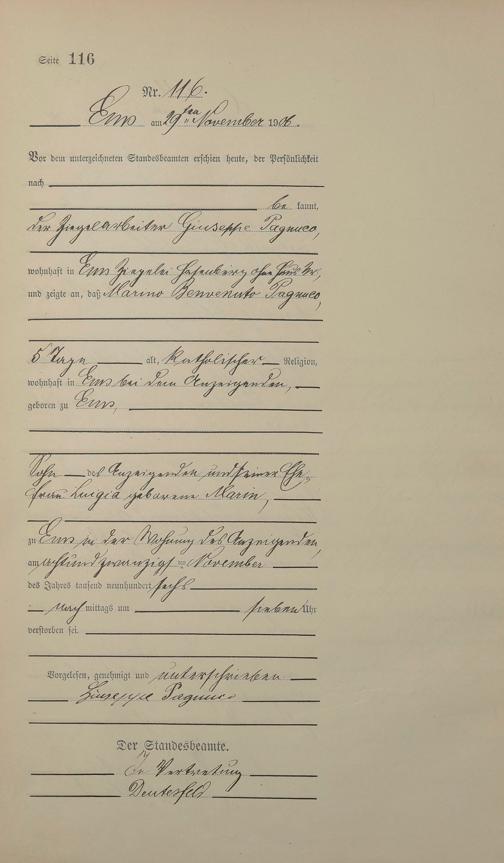 Seite 116
Nr. 116.
Ems am 29ten November 1906.
Vor dem unterzeichneten Standesbeamten erschien heute, der Persönlichkeit
nach
be kannt,
der Ziegelarbeiter Giuseppe Pagnuco,
wohnhaft in Ems Ziegelei Hasenberg ohne Haus Nr,
und zeigte an, daß Marino Benvenuto Pagnuco,
5 Tage alt, katholischer Religion,
wohnhaft in Ems bei dem Anzeigenden,
geboren zu Ems,
Sohn des Anzeigenden und seiner Ehe-
frau Luigia geborene Marin,
zu Ems in der Wohnung des Anzeigenden,
am achtundzwanzigsten November
des Jahres tausend neunhundert sechs
nach mittags um sieben Uhr
verstorben sei.
Vorgelesen, genehmigt und unterschrieben
Giuseppe Pagnuco
Der Standesbeamte.
In Vertretung